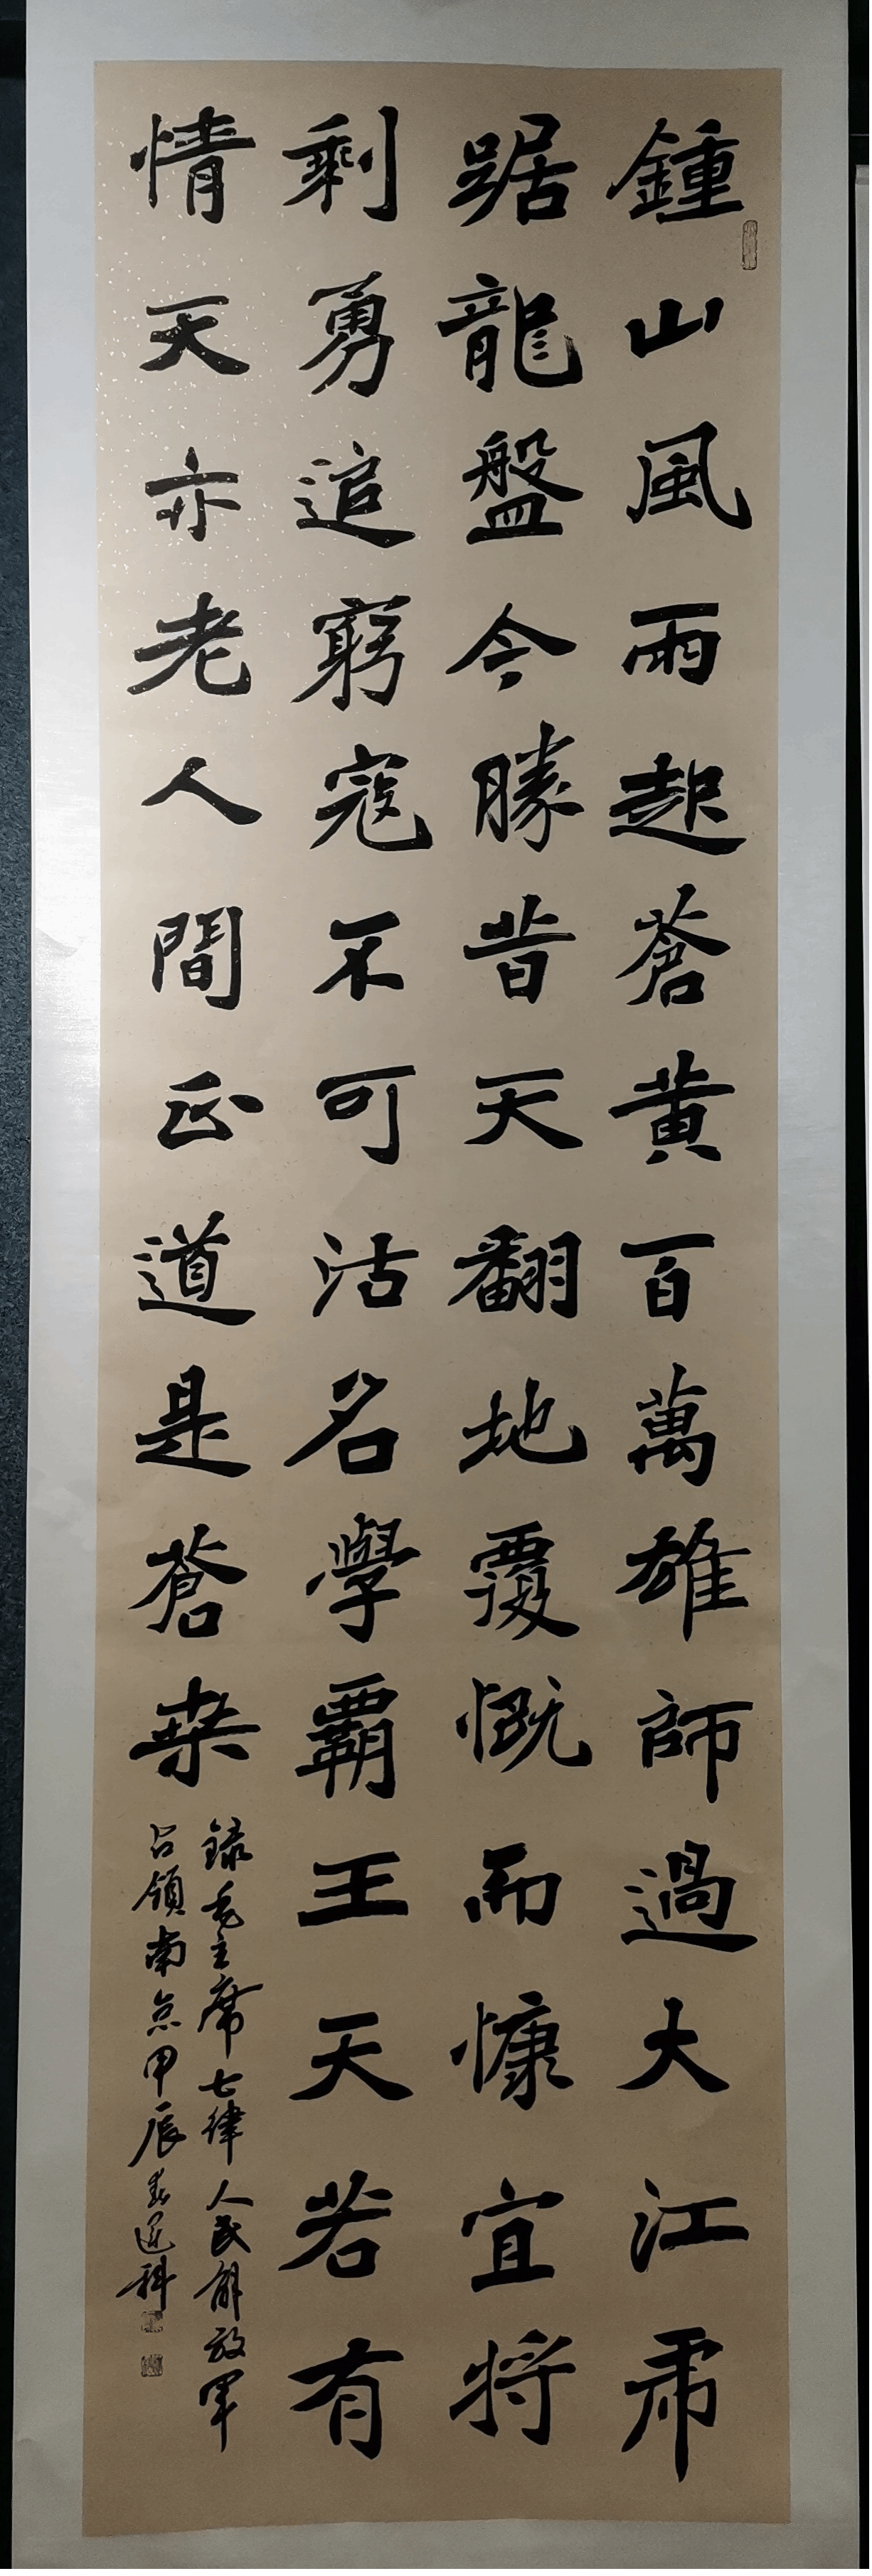 鍾山風雨起蒼黄百萬雄師過大江虎
踞龍盤今勝昔天翻地覆慨而慷宜將
剩勇追窮寇不可沽名學霸王天若有
情天亦老人間正道是蒼桒
録毛主席七律人民解放軍
占領南京甲辰春科